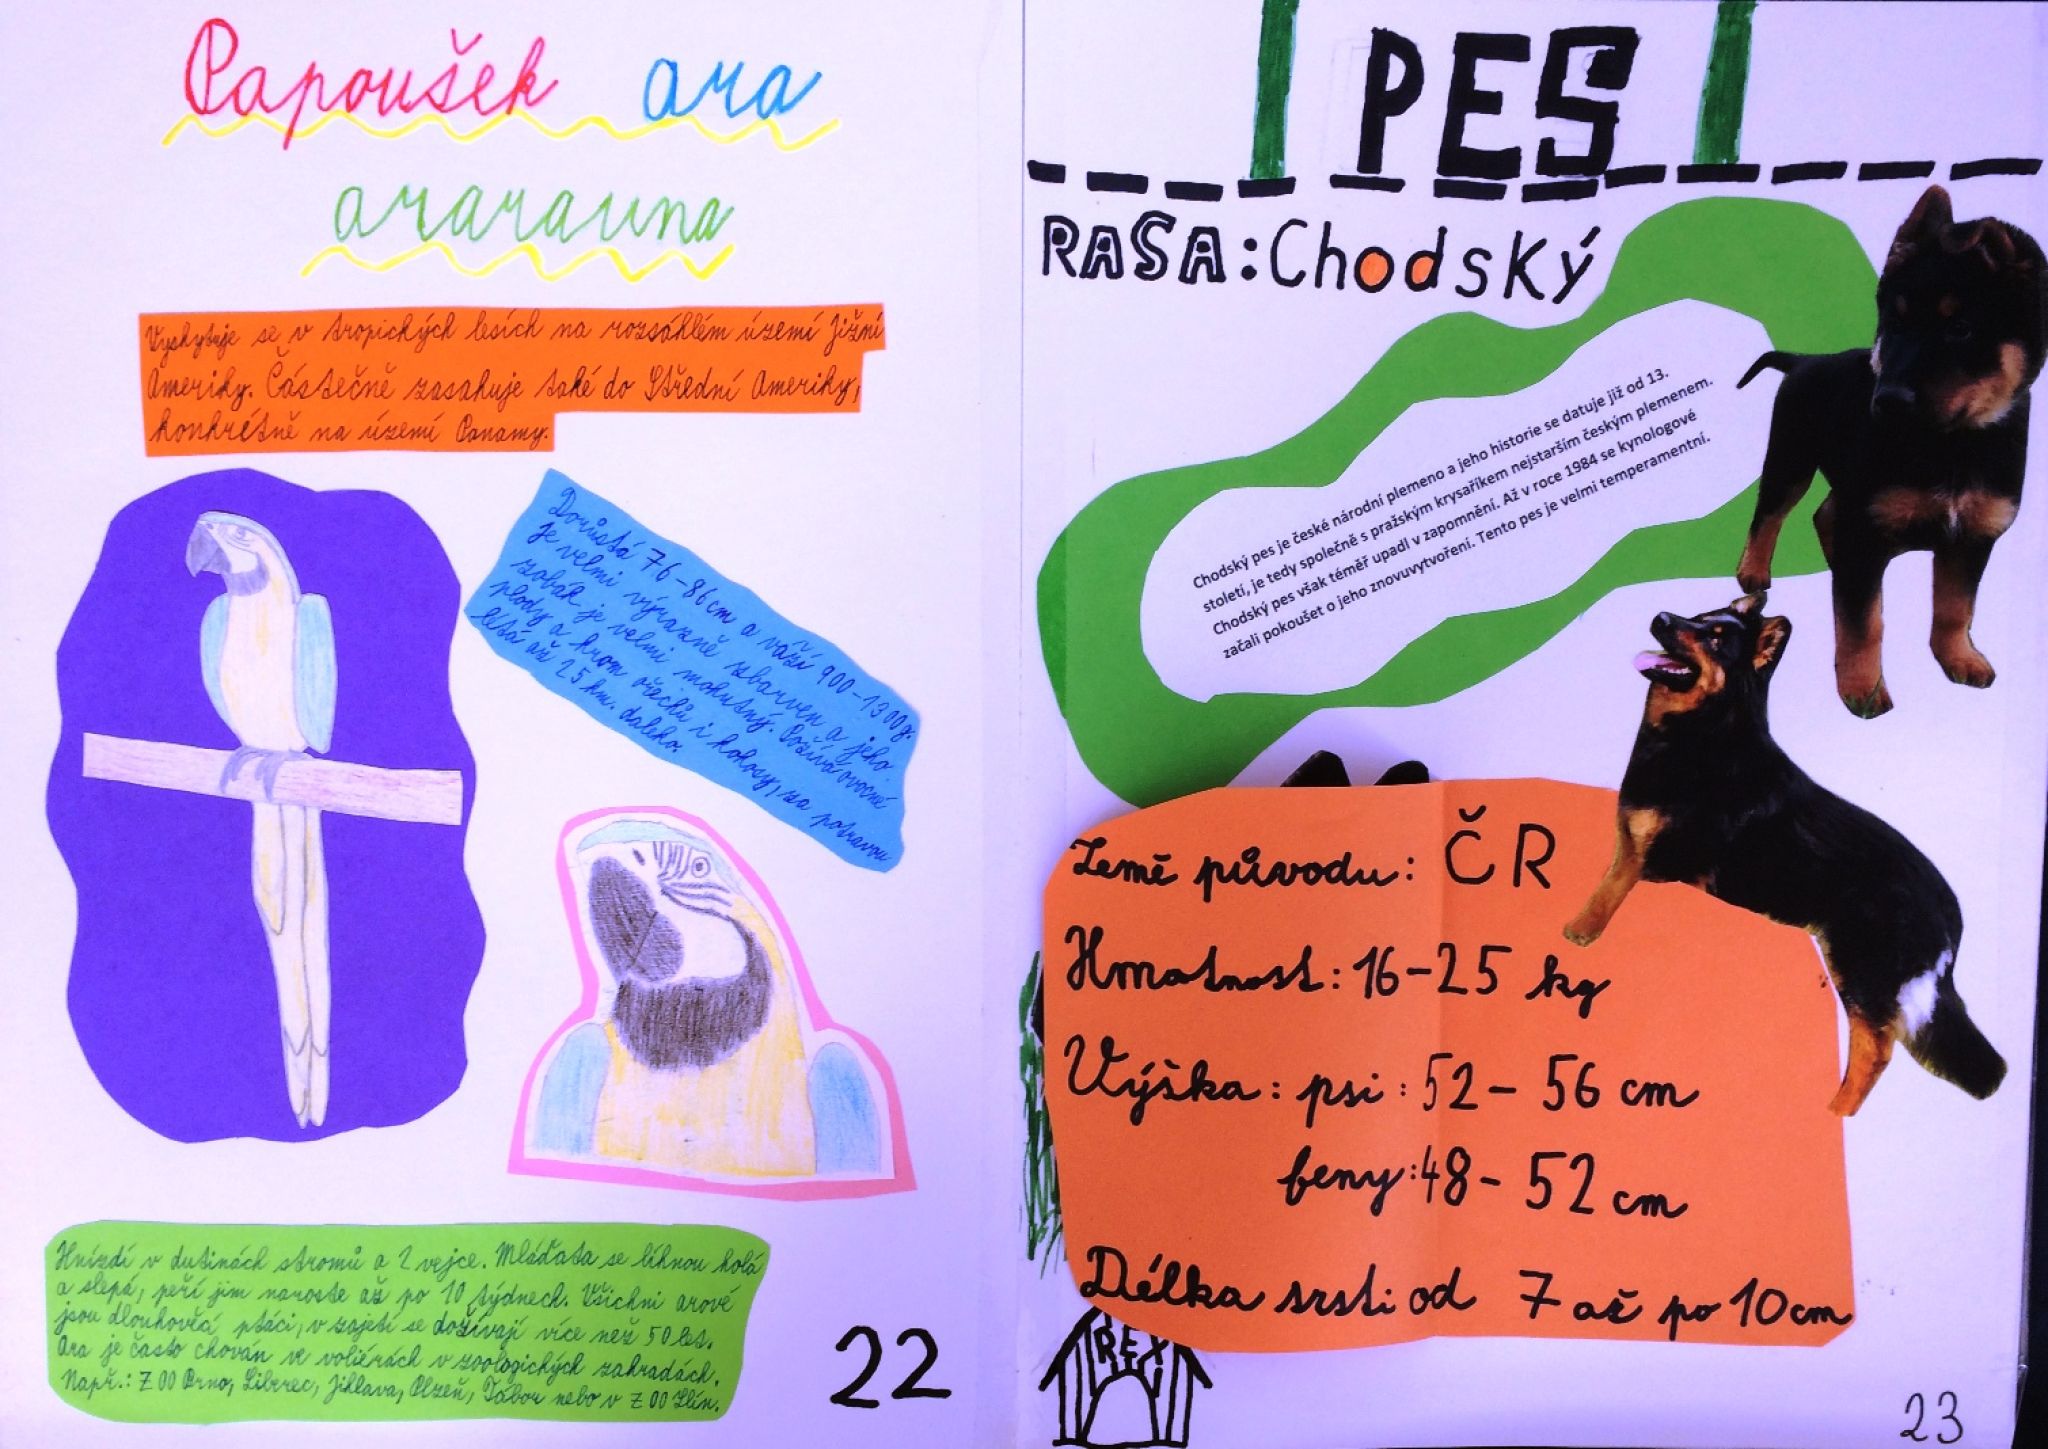 Papoušek ara
ararauna
Vyskytuje se v tropických lesích na rozsáhlém území Jižní
Ameriky. Částečně zasahuje také do Střední Ameriky,
konkrétně na území Panamy.
Dorůstá 76-86cm a váží 900-1300g.
Je velmi výrazně zbarven a jeho
zobák je velmi mohutný. Požívá ovocné
plody a krom ořechů i kokosy, za potravou
létá až 25 km. daleko.
Hnízdí v dutinách stromů a 2 vejce. Mláďata se líhnou holá
a slepá, peří jim naroste až po 10 týdnech. Všichni arové
jsou dlouhověcí ptáci, v zajetí se dožívají více než 50 let.
Ara je často chován ve voliérách v zoologických zahradách.
Např.: ZOO Brno, Liberec, Jihlava, Plzeň, Tábor nebo v ZOO Zlín.
22
PES
RASA: Chodský
Chodský pes je české národní plemeno a jeho historie se datuje již od 13.
století, je tedy společně s pražským krysaříkem nejstarším českým plemenem.
Chodský pes však téměř upadl v zapomnění. Až v roce 1984 se kynologové
začali pokoušet o jeho znovuvytvoření. Tento pes je velmi temperamentní.
Země původu: ČR
Hmotnost: 16-25 kg
Výška: psi: 52-56 cm
feny: 48-52 cm
Délka srsti od 7 až po 10cm
REX
23